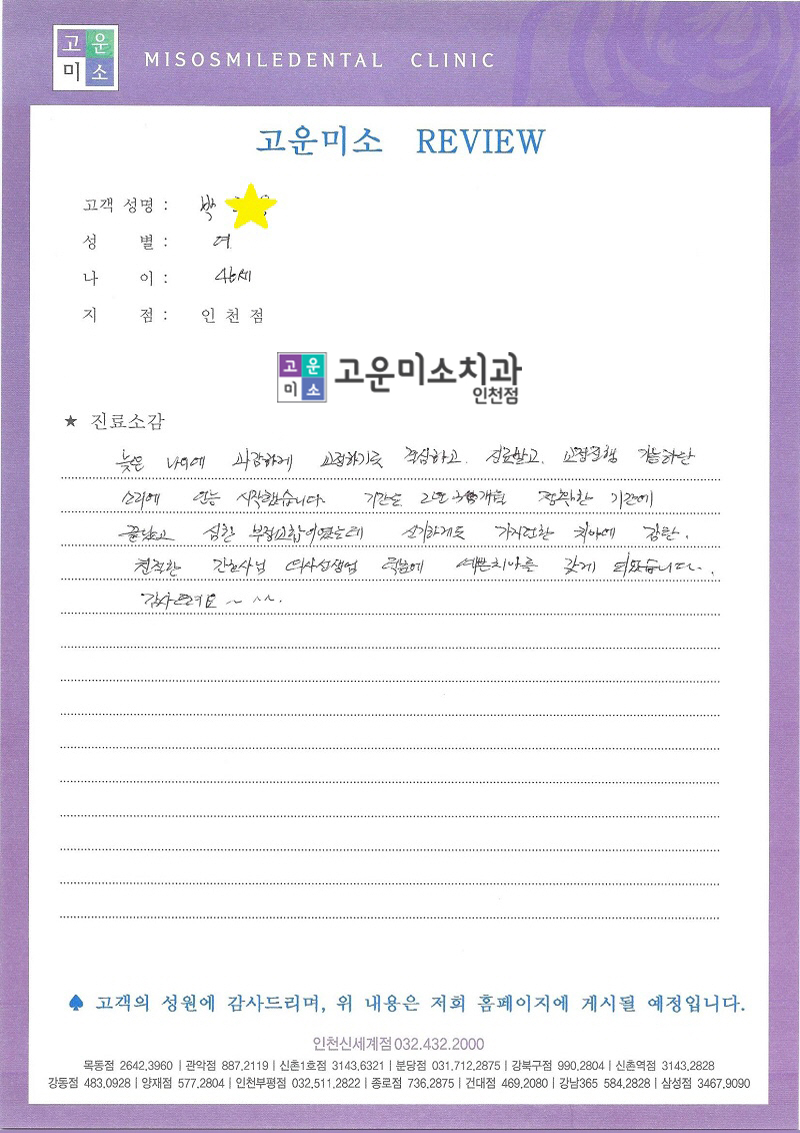 고운
미소
MISOSMILEDENTAL CLINIC
고운미소 REVIEW
고객 성명 : 박
성 별 : 여
나 이 : 46세
지 점 : 인 천 점
고운
미소
고운미소치과
인천점
★ 진료소감
늦은 나이에 과감하게 교정하기로 결심하고. 진료받고. 교정진행 가능하단
소리에 얼른 시작했습니다. 기간은 2년 정확한 기간에
끝났고 심한 부정교합이였는데 신기하게도 가지런한 치아에 감탄.
친절한 간호사님 의사선생님 덕분에 예쁜치아를 갖게 되었습니다.
감사드려요 ~ ^^.
♠ 고객의 성원에 감사드리며, 위 내용은 저희 홈페이지에 게시될 예정입니다.
인천신세계점 032.432.2000
목동점 2642,3960 | 관악점 887,2119 | 신촌1호점 3143,6321 | 분당점 031,712,2875 | 강북구점 990,2804 | 신촌역점 3143,2828
강동점 483,0928 | 양재점 577,2804 | 인천부평점 032,511,2822 | 종로점 736,2875 | 건대점 469,2080 | 강남365 584,2828 | 삼성점 3467,9090